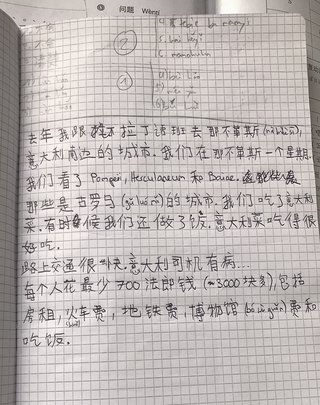 问题 Wenn
②
5. bāi
6. mamahuhu
①
去年我跟拉丁语班去那不勒斯
意大利南边的城市. 我们在那不勒斯一个星期.
我们看了 Pompeii, Herculaneum 和
那些是古罗马 (gǔ luó mǎ) 的城市. 我们吃了意大利
菜. 有时候我们还做了饭. 意大利菜吃得很
好吃.
路上交通很快. 意大利司机有病...
每个人花最少 700 法郎钱 (~3000 块多), 包括
房租, 火车费, 地铁费, 博物馆 (bó wù guǎn) 费和
吃饭.